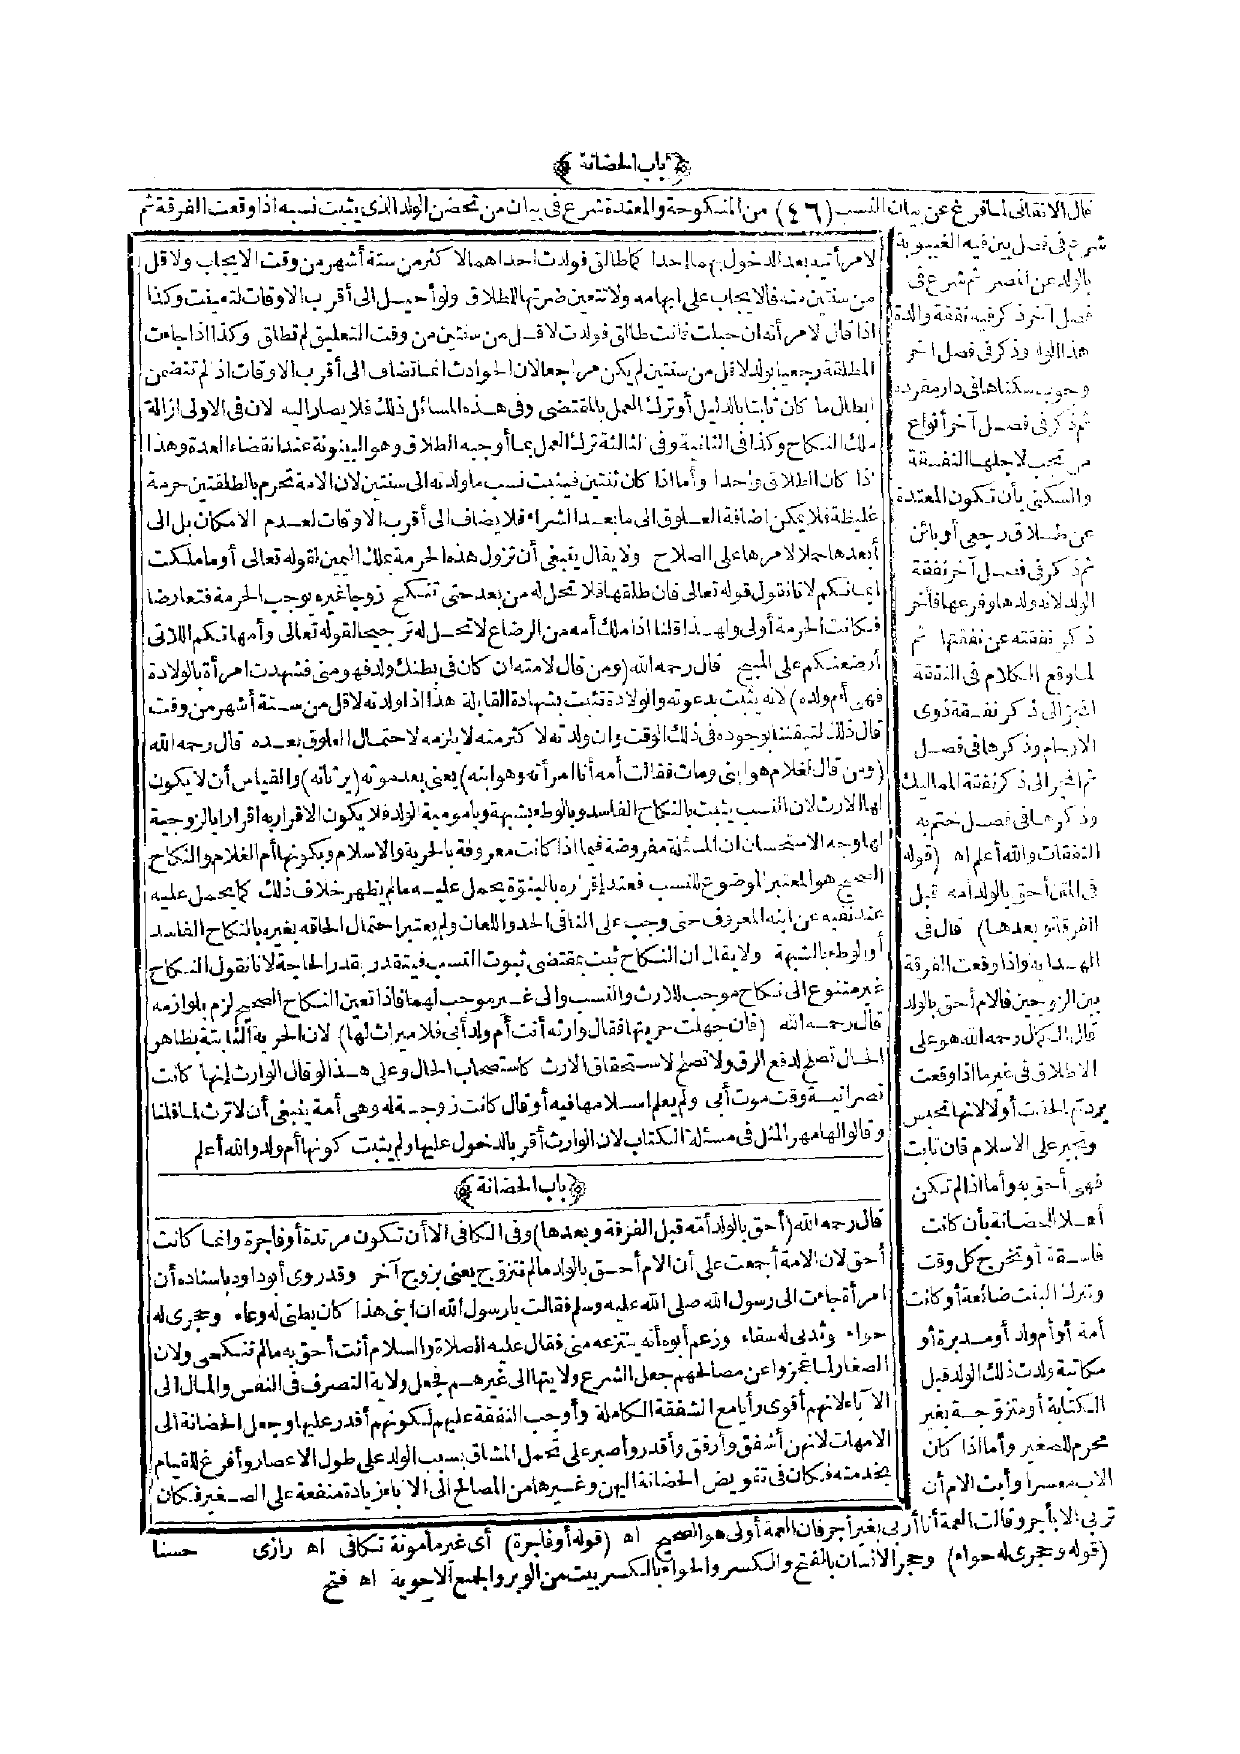 ﴿ باب الحضانة ﴾
قال الاتقانى لما فرغ عن بيان النسب (٤٦) من المنكوحة والمعتدة شرع فى بيان من تحضن الولد الذى يثبت نسبه اذا وقعت الفرقة ثم
شرع فى فصل بين فيه الغيبوبة
بالولد عن المصر ثم شرع فى
فصل آخر ذكر فيه نفقة والدة
هذا الولد وذكر فى فصل آخر
وجوب سكناها فى دار مفردة
ثم ذكر فى فصل آخر أنواع
من تجب لاجلها النفقة
والسكنى بأن تكون المعتدة
عن طلاق رجعى أو بائن
ثم ذكر فى فصل آخر نفقة
الولد لانه ولدها وفرعها فأخر
ذكر نفقته عن نفقتها ثم
لما وقع الكلام فى النفقة
انجر الى ذكر نفقة ذوى
الارحام وذكرها فى فصل
ثم انجر الى ذكر نفقة المماليك
وذكرها فى فصل ختم به
النفقات والله أعلم اه (قوله
فى المتن أحق بالولد أمه قبل
الفرقة وبعدها) قال فى
الهداية واذا وقعت الفرقة
بين الزوجين فالام أحق بالولد
قال الكمال رحمه الله هو على
الاطلاق فى غير ما اذا وقعت
بردتها لحقت أولا لانها تحبس
وتجبر على الاسلام فان تابت
فهى أحق به وأما اذا لم تكن
أهلا للحضانة بأن كانت
فاسقة أو تخرج كل وقت
وتترك البنت ضائعة أو كانت
أمة أو أم ولد أو مدبرة أو
مكاتبة ولدت ذلك الولد قبل
الكتابة أو متزوجة بغير
محرم للصغير وأما اذا كان
الاب معسرا وأبت الام أن
تربى الا بأجر وقالت العمة أنا أربى بغير أجر فان العمة أولى هو الصحيح اه (قوله أو فاجرة) أى غير مأمونة تكافى اه رازى
(قوله وحجرى له حواء) وحجر الانسان بالفتح والكسر والحواء بالكسر بيت من الوبر والجمع الاحوية اه فتح
لامرأتيه بعد الدخول بهما احدا كما طالق فولدت احداهما لاكثر من ستة أشهر من وقت الايجاب ولاقل
من سنتين منه فالايجاب على ابهامه ولا تتعين ضرتها للطلاق ولو أحيل الى أقرب الاوقات لتعينت وكذا
اذا قال لامرأته ان حبلت فانت طالق فولدت لاقل من سنتين من وقت التعليق لم تطلق وكذا اذا جاءت
المطلقة رجعيا بولد لاقل من سنتين لم يكن مراجعا لان الحوادث انما تضاف الى أقرب الاوقات اذ لم تتضمن
ابطال ما كان ثابتا بالدليل أو ترك العمل بالمقتضى وفى هذه المسائل ذلك فلا يصار اليه لان فى الاولى ازالة
ملك النكاح وكذا فى الثانية وفى الثالثة ترك العمل بما أوجبه الطلاق وهو البينونة عند انقضاء العدة وهذا
اذا كان الطلاق واحدا وأما اذا كان ثنتين فيثبت نسب ما ولدته الى سنتين لان الامة تحرم بالطلقتين حرمة
غليظة فلا يمكن اضافة العلوق الى ما بعد الشراء فلا يضاف الى أقرب الاوقات لعدم الامكان بل الى
أبعدها حملا لامرها على الصلاح ولا يقال ينبغى أن تزول هذه الحرمة بملك اليمين لقوله تعالى أو ما ملكت
ايمانكم لانا نقول قوله تعالى فان طلقها فلا تحل له من بعد حتى تنكح زوجا غيره يوجب الحرمة فتعارضا
فكانت الحرمة أولى ولهذا قلنا اذا ملك أمه من الرضاع لا تحل له ترجيحا لقوله تعالى وأمهاتكم اللاتى
أرضعنكم على المبيح قال رحمه الله (ومن قال لامته ان كان فى بطنك ولد فهو منى فشهدت امرأة بالولادة
فهى أم ولده) لانه يثبت بدعوته والولادة تثبت بشهادة القابلة هذا اذا ولدته لاقل من ستة أشهر من وقت
قال ذلك لتيقننا بوجوده فى ذلك الوقت وان ولدته لاكثر منه لا يلزمه لاحتمال العلوق بعده قال رحمه الله
(ومن قال لغلام هو ابنى ومات فقالت أمه أنا امرأته وهو ابنه) يعنى بعد موته (يرثانه) والقياس أن لا يكون
لها الارث لان النسب يثبت بالنكاح الفاسد وبالوطء بشبهة وبأمومية الولد فلا يكون الاقرار به اقرارا بالزوجية
لها وجه الاستحسان ان المسئلة مفروضة فيما اذا كانت معروفة بالحرية والاسلام وبكونها أم الغلام والنكاح
الصحيح هو المعتبر الموضوع للنسب فعند إقراره بالبنوة يحمل عليه ما لم يظهر خلاف ذلك كما يحمل عليه
عند نفيه عن ابنه المعروف حتى وجب على النافى الحد واللعان ولم يعتبر احتمال الحاقه بغيره بالنكاح الفاسد
أو الوطء بالشبهة ولا يقال ان النكاح ثبت بمقتضى ثبوت النسب فيتقدر بقدر الحاجة لانا نقول النكاح
غير متنوع الى نكاح موجب للارث والنسب والى غير موجب لهما فاذا تعين النكاح الصحيح لزم بلوازمه
قال رحمه الله (فان جهلت حريتها فقال وارثه أنت أم ولد أبى فلا ميراث لها) لان الحرية الثابتة بظاهر
الحال تصلح لدفع الرق ولا تصلح لاستحقاق الارث كاستصحاب الحال وعلى هذا لو قال الوارث إنها كانت
نصرانية وقت موت أبى ولم يعلم اسلامها فيه أو قال كانت زوجة له وهى أمة ينبغى أن لا ترث لما قلنا
وقالوا لها مهر المثل فى مسئلة الكتاب لان الوارث أقر بالدخول عليها ولم يثبت كونها أم ولد والله أعلم
﴿ باب الحضانة ﴾
قال رحمه الله (أحق بالولد أمه قبل الفرقة وبعدها) وفى الكافى الا أن تكون مرتدة أو فاجرة وانما كانت
أحق لان الامة أجمعت على أن الام أحق بالولد ما لم تتزوج يعنى بزوج آخر وقد روى أبو داود باسناده أن
امرأة جاءت الى رسول الله صلى الله عليه وسلم فقالت يا رسول الله ان ابنى هذا كان بطنى له وعاء وحجرى له
حواء وثدبى له سقاء وزعم أبوه أنه ينتزعه منى فقال عليه الصلاة والسلام أنت أحق به ما لم تنكحى ولان
الصغار لما عجزوا عن مصالحهم جعل الشرع ولايتها الى غيرهم فجعل ولاية التصرف فى النفس والمال الى
الآباء لانهم أقوى رأيا مع الشفقة الكاملة وأوجب النفقة عليهم لكونهم أقدر عليها وجعل الحضانة الى
الامهات لانهن أشفق وأرفق وأقدر وأصبر على تحمل المشاق بسبب الولد على طول الاعصار وأفرغ للقيام
بخدمته فكان فى تفويض الحضانة اليهن وغيرها من المصالح الى الآباء زيادة منفعة على الصغير فكان
حسنا